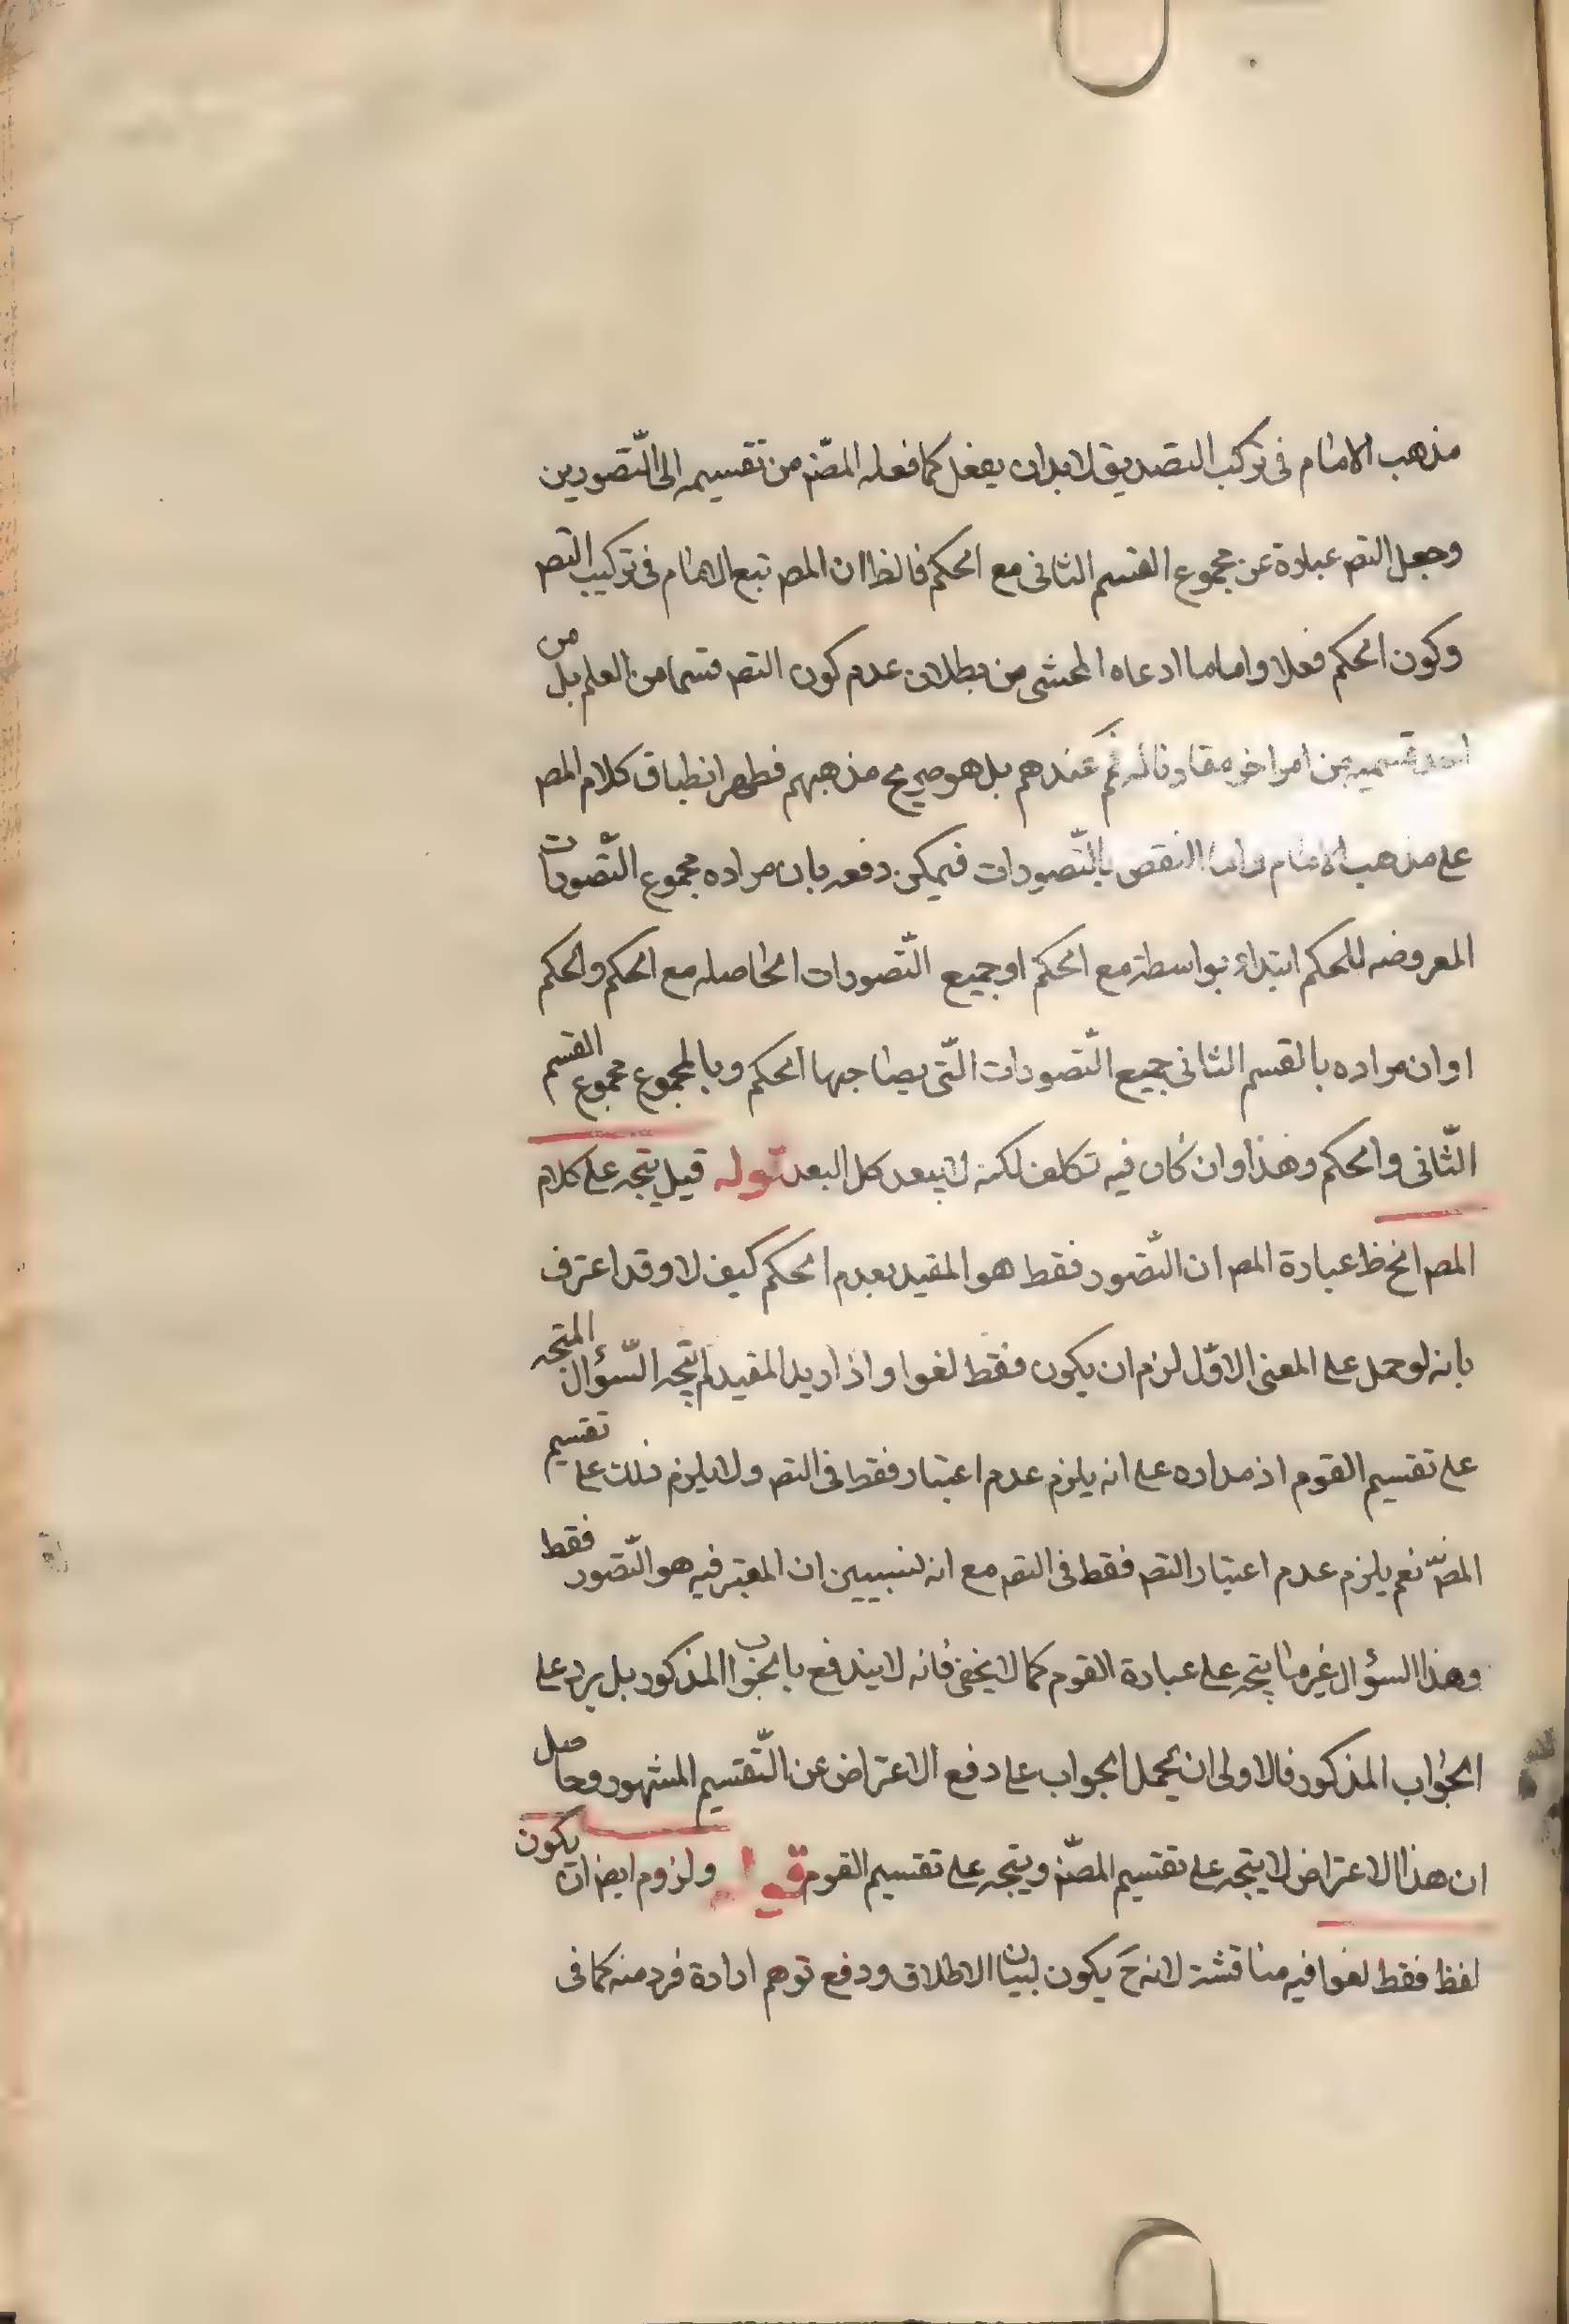 مذهب الامام فى تركب التصديق لابد ان يفعل كما فعله المصّنف من تقسيمه الى التّصورين
وجعل التص عبارة عن مجموع القسم الثانى مع الحكم فالظ ان المص تبع الامام فى تركيب التص
وكون الحكم فعلا واما ما ادعاه المحشى من بطلان عدم كون التص قسما من العلم بل من
احد قسميه من امر اخر مقارنا له فم عندهم بل هو صريح مذهبهم فظهر انطباق كلام المص
على مذهب الامام واما النقص بالتّصورات فيمكن دفعه بان مراده مجموع التّصورات
المعروضه للحكم ابتداء بواسطة مع الحكم او جميع التّصورات الحاصله مع الحكم والحكم
او ان مراده بالقسم الثانى جميع التّصورات الّتى يصاحبها الحكم وبالمجموع مجموع القسم
الثّانى والحكم وهذا وان كان فيه تكلف لكنه لا يبعد كل البعد قوله قيل يتجه على كلام
المص الخ ظ عبارة المص ان التّصور فقط هو المقيد بعدم الحكم كيف لا وقد اعترف
بانه لو حمل على المعنى الاوّل لزم ان يكون فقط لغوا واذا اريد المقيد لم يتّجه السّؤال المتجه
على تقسيم القوم اذ مداره على انه يلزم عدم اعتبار فقط فى التص ولا يلزم ذلك على تقسيم
المصّنف نعم يلزم عدم اعتبار التص فقط فى التص مع انه سيبين ان المعتبر فيه هو التّصور فقط
وهذا السؤال غير ما يتجه على عبارة القوم كما لا يخفى فانه لا يندفع بالجواب المذكور بل يرد على
الجواب المذكور فالاولى ان يحمل الجواب على دفع الاعتراض عن التّقسيم المشهور وحاصل
ان هذا الاعتراض لا يتجه على تقسيم المصّنف ويتجه على تقسيم القوم قوله ولزوم ايض ان يكون
لفظ فقط لغوا فيه مناقشة لانه ح يكون لبيان الاطلاق ودفع توهم ارادة فرد منه كما فى